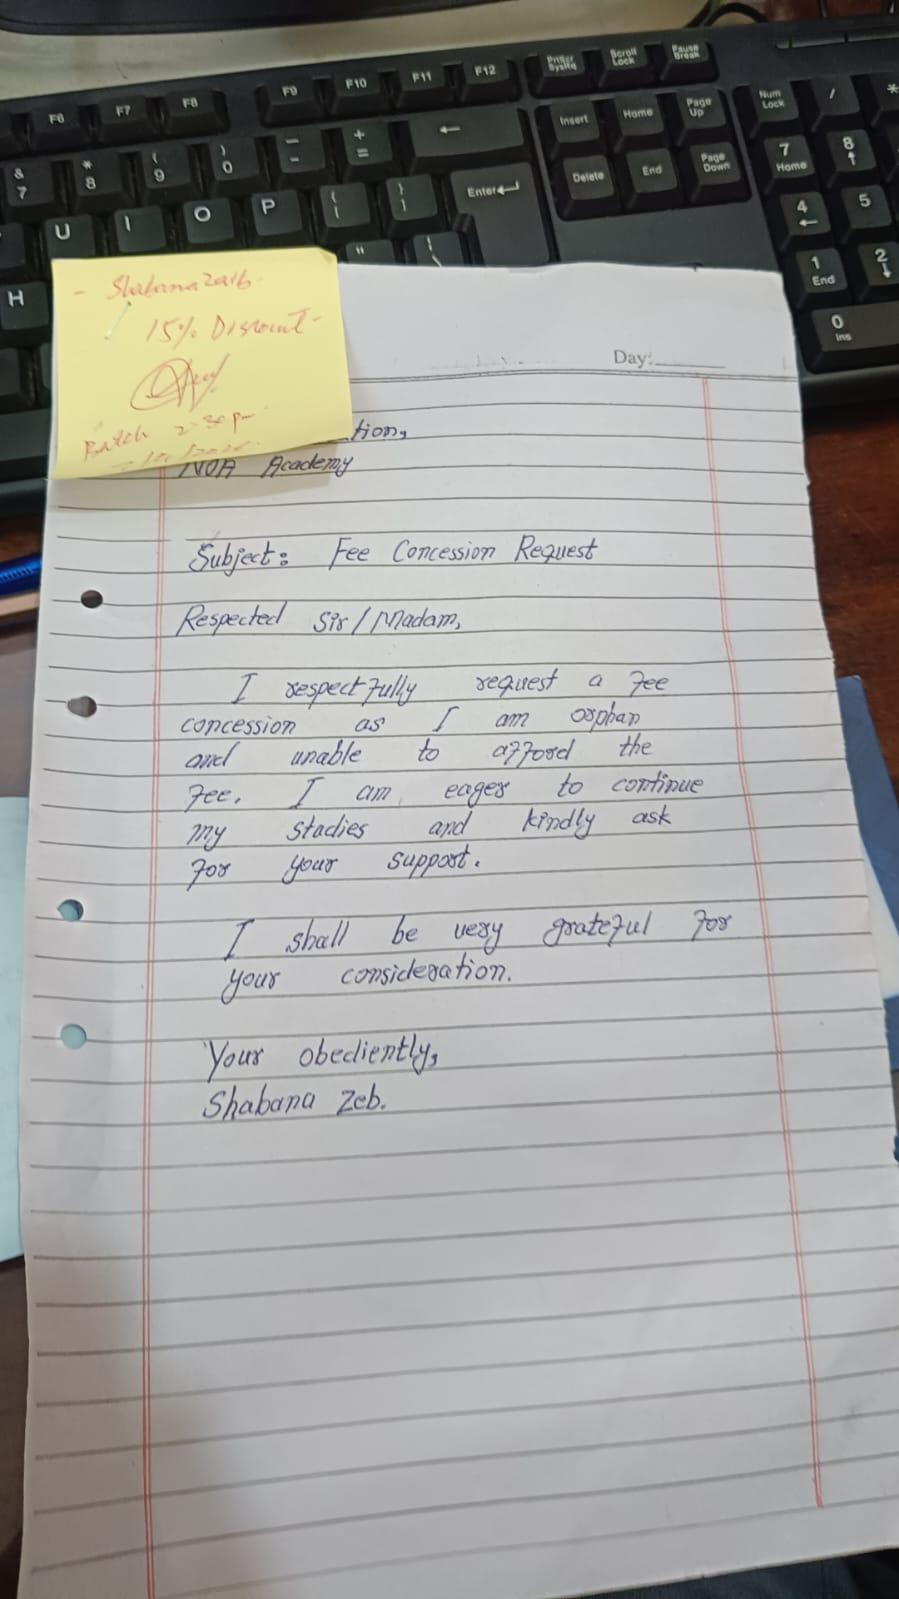 F6 F7 F8 F9 F10 F11 F12 PrtScr SysRq Scroll Lock Pause Break
& 7 * 8 ( 9 ) 0 - + = Insert Home Page Up Num Lock / *
U I O P { [ } ] Enter Delete End Page Down 7 Home 8
H " 4 5
1 End 2
0 Ins
- Shabana Zaib -
15% Discount -
Batch 2-30 pm
Day:
tion,
NOA Academy
Subject: Fee Concession Request
Respected Sir/Madam,
I respectfully request a fee
concession as I am orphan
and unable to afford the
fee. I am eager to continue
my stadies and kindly ask
for your support.
I shall be very grateful for
your consideration.
Your obediently,
Shabana Zeb.